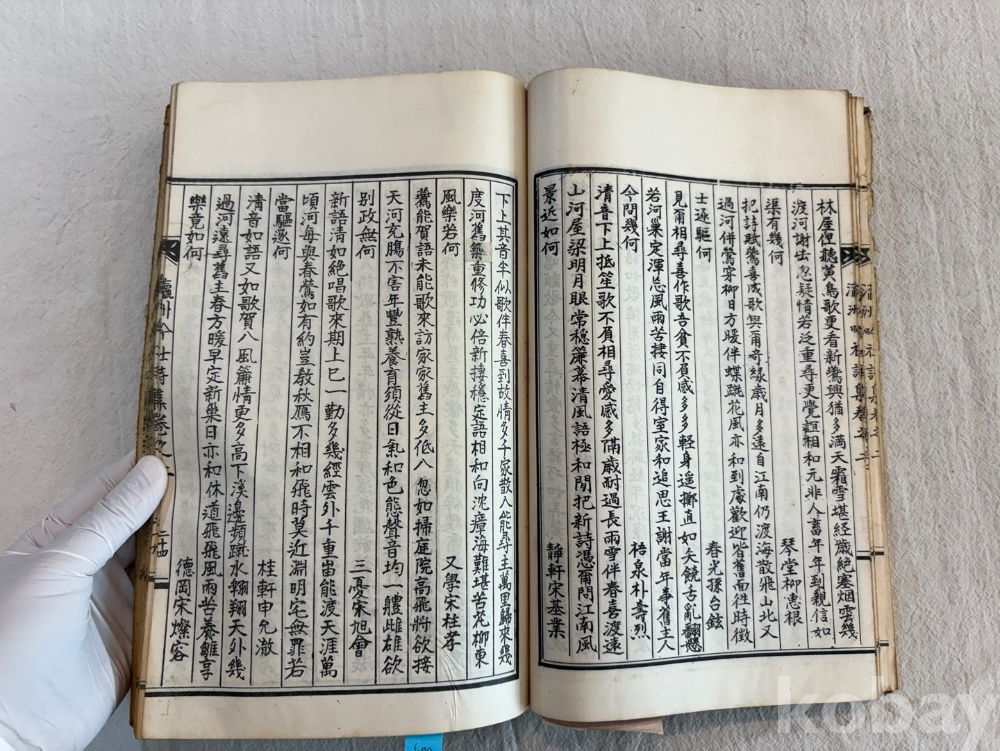 林屋俚聽黃鳥歌更看新鶯興猶多滿天霜雪堪經歲絶塞烟雲幾
渡河謝虫忽疑情若泛重尋更覺誼相和元非人畜年年到親信如
渠有幾何 琴堂柳憲根
把詩賦鶯喜成歌與爾奇緣歲月多遠自江南仍渡海散飛山北又
過河併鶯穿柳日方暖伴蝶跳花風亦和到處歡迎皆舊面徃時徵
士逐驅何 春光孫台鉉
見爾相尋喜作歌吾貧不負感多多輕身遥擲直如矢饒舌亂翻懸
若河巢定渾忘風雨苦捿同自得室家和追思王謝當年事舊主人
今問幾何 梧泉朴壽烈
清音下上抵笙歌不負相尋愛感多備歲耐過長雨雪伴春喜渡遠
山河屋梁明月眼常穏簾幕清風語極和閒把新詩憑爾問江南風
景近如何 靜軒宋基業
下上其音半似歌伴春喜到故情多千家散入能尋主萬里歸來幾
度河舊築重修功必倍新捿穩定語相和向沈瘴海難堪苦花柳東
風樂若何 又學宋柱孝
鶯能賀語未能歌來訪家家舊主多低入忽如掃庭院高飛將欲接
天河充膓不害年豊熟養育須從日氣和色態聲音均一軆雌雄欲
別政無何 三憂宋旭會
新語清如絶唱歌來期上巳一勤多幾經雲外千重宙能渡天涯萬
頃河每與春鶯如有約豈教秋雁不相和飛時莫近淵明宅無罪若
當驅逐何 桂軒申允澈
清音如語又如歌賀八風簾情更多高下溪邊頻跳水翱翔天外幾
過河遠尋舊主春方暖早定新巢日亦和休道飛飛風雨苦養雛享
樂竟如何 德岡宋燦容
瀛州吟社詩集卷之二
kobay